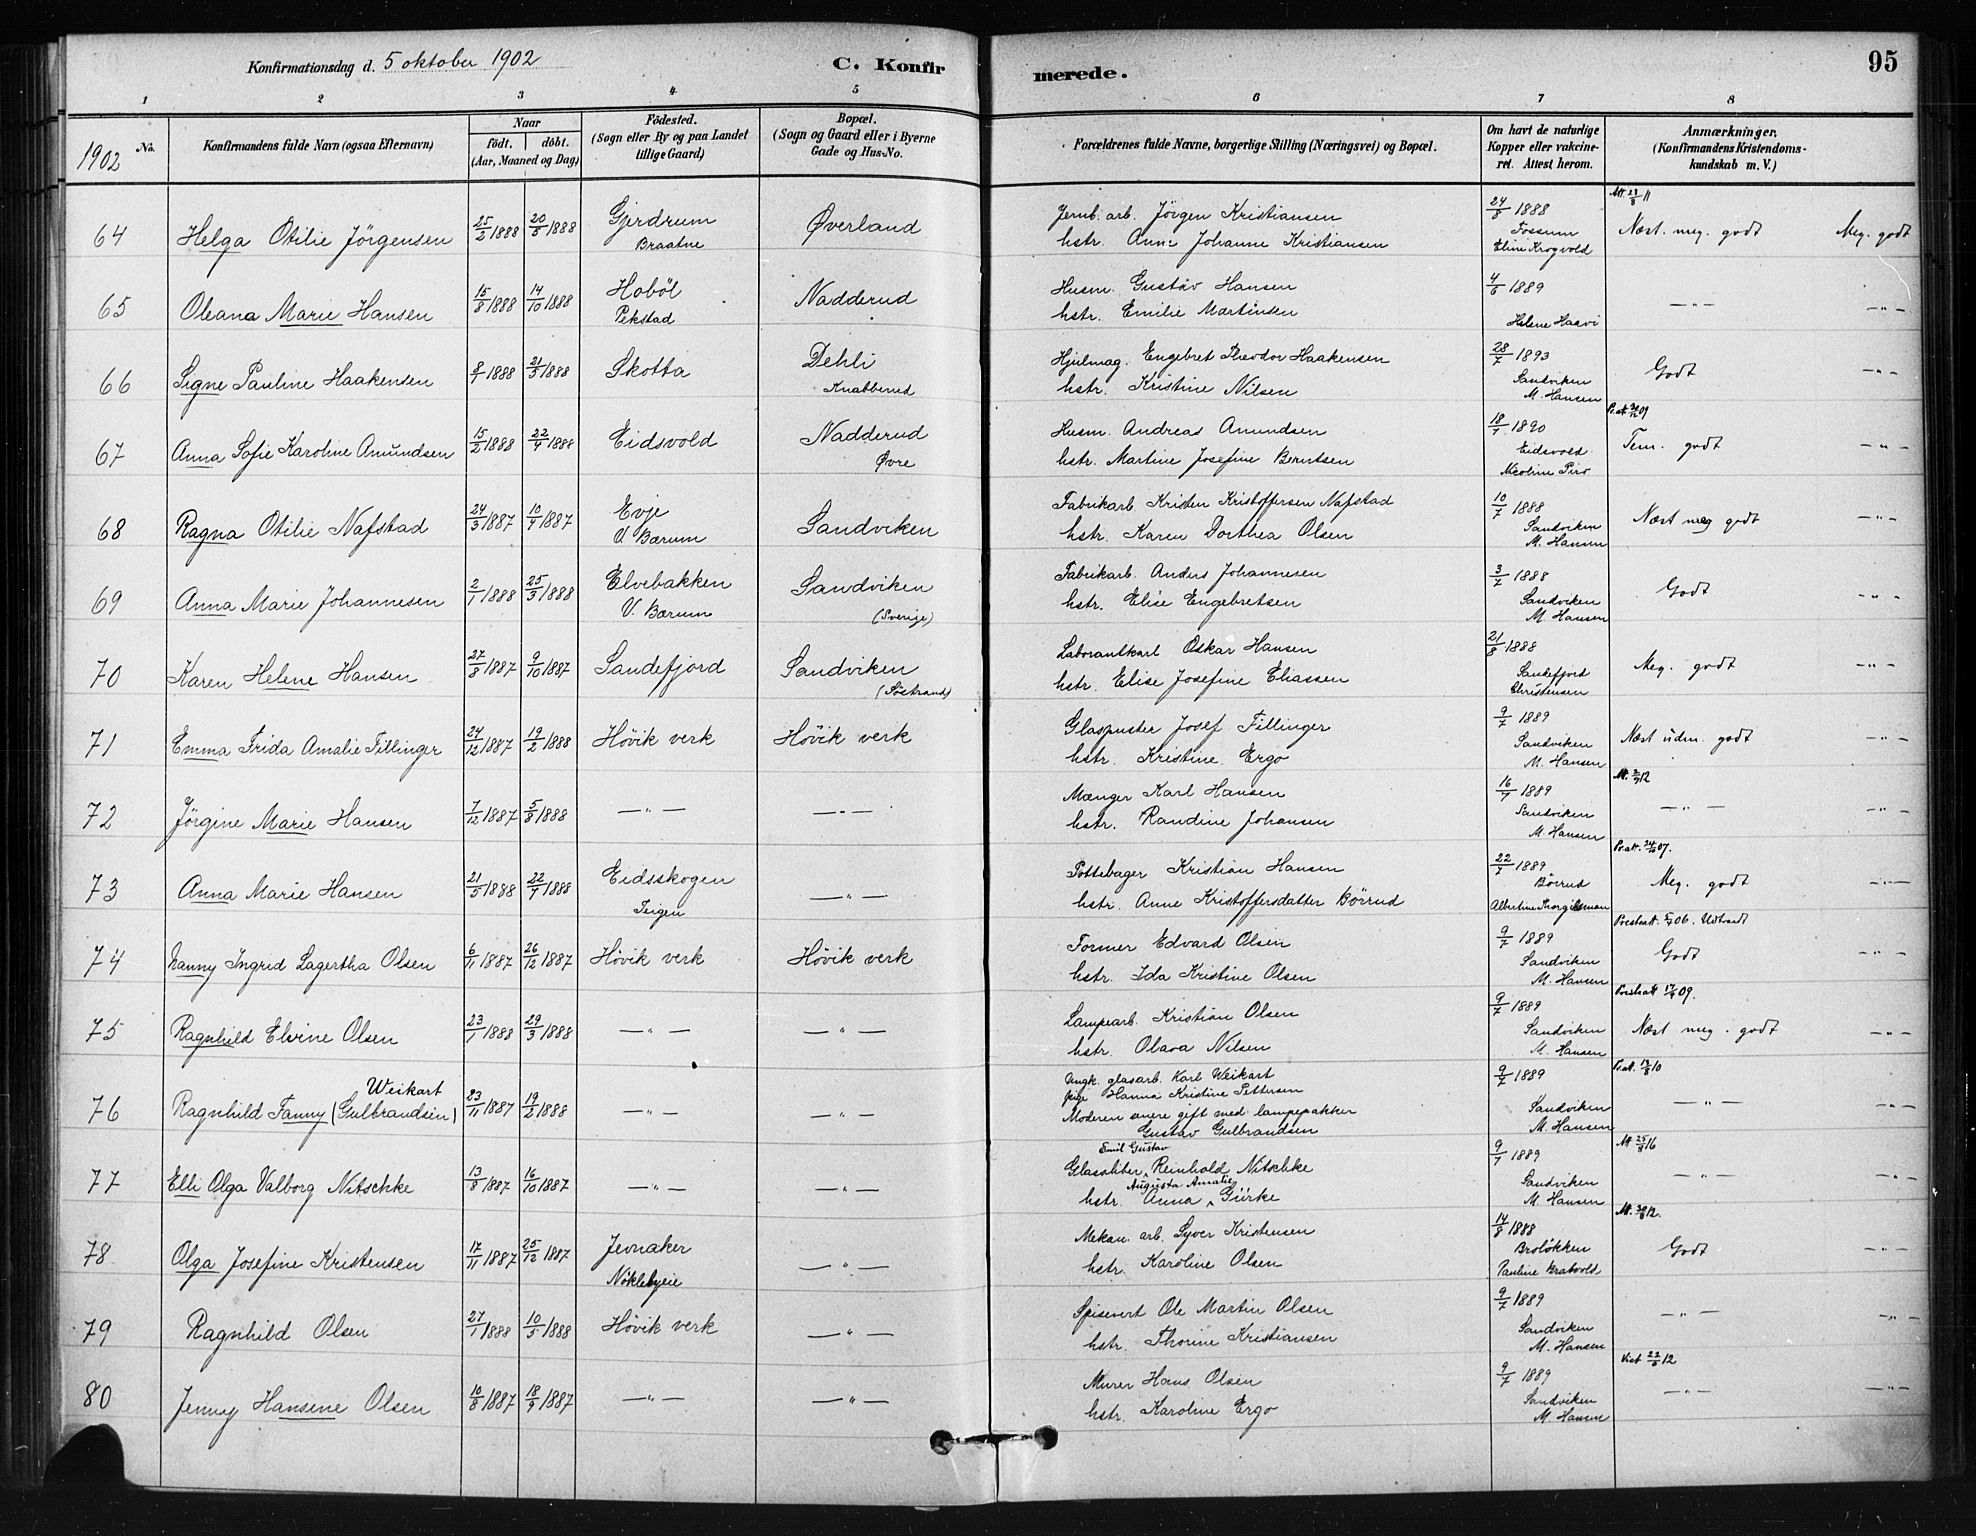 Konfirmationsdag d. 5 oktober 1902
C. Konfirmerede.
95
1 2 3 4 5 6 7 8
1902 No.
Konfirmandens fulde Navn (ogsaa Efternavn)
Naar
födt. döbt.
(Aar, Maaned og Dag)
Födested.
(Sogn eller By og paa Landet
tillige Gaard)
Bopæl.
(Sogn og Gaard eller i Byerne
Gade og Hus-No.
Forældrenes fulde Navne, borgerlige Stilling (Næringsvei) og Bopæl.
Om havt de naturlige
Kopper eller vakcine-
ret. Attest herom.
Anmærkninger.
(Konfirmandens Kristendoms-
kundskab m. V.)
64 Helga Otilie Jörgensen 25/2 1888 20/5 1888 Gjerdrum Braatne Øverland
Jernb. arb. Jörgen Kristiansen
hstr. Anne Johanne Kristiansen
24/8 1888 Fossum Eline Krogvold
Næst. meg. godt Meg. godt
65 Oleana Marie Hansen 15/8 1888 14/10 1888 Hobøl Pekstad Nadderud
Husm. Gustav Hansen
hstr. Emilie Martinsen
4/6 1889 Helene Haavi
—"— —"—
66 Signe Pauline Haakensen 8/1 1888 21/5 1888 Skotta Dehli Knabberud
Hjulmag. Engebret Theodor Haakensen
hstr. Kristine Nilsen
28/7 1893 Sandviken M. Hansen
Godt —"—
67 Anna Sofie Karoline Amundsen 15/2 1888 22/4 1888 Eidsvold Nadderud Øvre
Husm. Andreas Amundsen
hstr. Martine Josefine Berntsen
18/7 1890 Eidsvold Nicoline Piro
Tem. godt —"—
68 Ragna Otilie Nafstad 24/3 1887 10/4 1887 Evje V. Bærum Sandviken
Fabrikarb. Kristen Kristoffersen Nafstad
hstr. Karen Dorthea Olsen
10/7 1888 Sandviken M. Hansen
Næst meg godt —"—
69 Anna Marie Johannesen 2/1 1888 25/3 1888 Elvebakken V. Bærum Sandviken (Sverige)
Fabrikarb. Anders Johannesen
hstr. Elise Engebretsen
3/7 1888 Sandviken M. Hansen
Godt —"—
70 Karen Helene Hansen 27/8 1887 9/10 1887 Sandefjord Sandviken (Søstrand)
Laborantkarl Oskar Hansen
hstr. Elise Josefine Eliassen
21/8 1888 Sandefjord Christensen
Meg. godt —"—
71 Emma Frida Amalie Fillinger 24/12 1887 19/2 1888 Høvik verk Høvik verk
Glaspuster Josef Fillinger
hstr. Kristine Ergo
9/7 1889 Sandviken M. Hansen
Næst udm. godt —"—
72 Jörgine Marie Hansen 7/12 1887 5/8 1888 —"— —"—
Mænger Karl Hansen
hstr. Randine Johansen
16/7 1889 Sandviken M. Hansen
—"— —"—
73 Anna Marie Hansen 21/5 1888 22/7 1888 Eidsskogen Teigen —"—
Pottebager Kristian Hansen
hstr. Anne Kristoffersdatter Börrud
22/7 1889 Börrud Albertine Thorgilsman
Pr.att. 24/10 07.
Meg. godt —"—
74 Nanny Ingrid Lagertha Olsen 6/11 1887 26/12 1887 Høvik verk Høvik verk
Former Edvard Olsen
hstr. Ida Kristine Olsen
9/7 1889 Sandviken M. Hansen
Godt —"—
75 Ragnhild Elvine Olsen 23/1 1888 29/3 1888 —"— —"—
Lampearb. Kristian Olsen
hstr. Olava Nilsen
9/7 1889 Sandviken M. Hansen
Næst meg. godt —"—
76 Ragnhild Fanny Weikart (Gulbrandsen) 23/11 1887 19/2 1888 —"— —"—
Ungk. glasarb. Karl Weikart
pige Hanna Kristine Pettersen
Moderen senere gift med lampepakker
Gustav Gulbrandsen
9/7 1889 Sandviken M. Hansen
—"— —"—
77 Elli Olga Valborg Nitschke 13/8 1887 16/10 1887 —"— —"—
Emil Gustav
Glassliber Reinhold Nitschke
Augusta Amalie
hstr. Anna Gürke
9/7 1889 Sandviken M. Hansen
—"— —"—
78 Olga Josefine Kristensen 17/11 1887 25/12 1887 Jevnaker Nöklebyeie —"—
Mekan. arb. Syver Kristensen
hstr. Karoline Olsen
14/8 1888 Brolökken Pauline Bratvold
Godt —"—
79 Ragnhild Olsen 27/1 1888 10/5 1888 Høvik verk —"—
Spisevert Ole Martin Olsen
hstr. Thorine Kristiansen
9/7 1889 Sandviken M. Hansen
—"— —"—
80 Jenny Hansine Olsen 10/8 1887 18/9 1887 —"— —"—
Murer Hans Olsen
hstr. Karoline Ergo
9/7 1889 Sandviken M. Hansen
—"— —"—